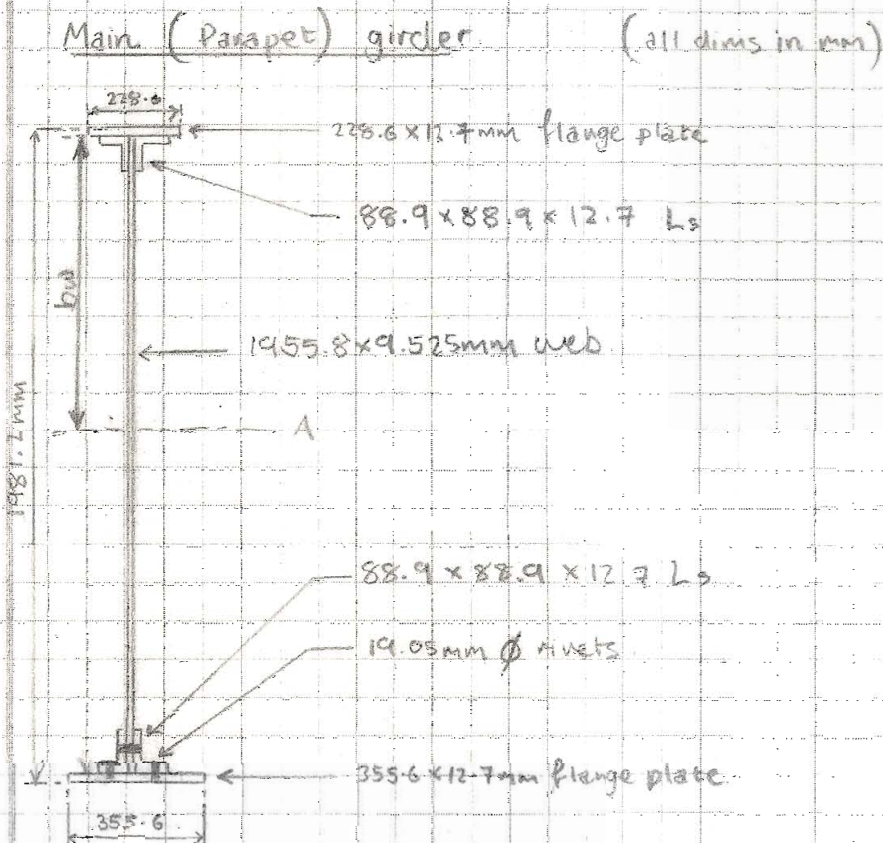 Main (Parapet) girder (all dims in mm)
228.6
228.6 x 12.7mm flange plate
88.9 x 88.9 x 12.7 Ls
bw
1955.8 x 9.525mm web
A
1981.2 mm
88.9 x 88.9 x 12.7 Ls
19.05mm Ø rivets
355.6 x 12.7mm flange plate
355.6